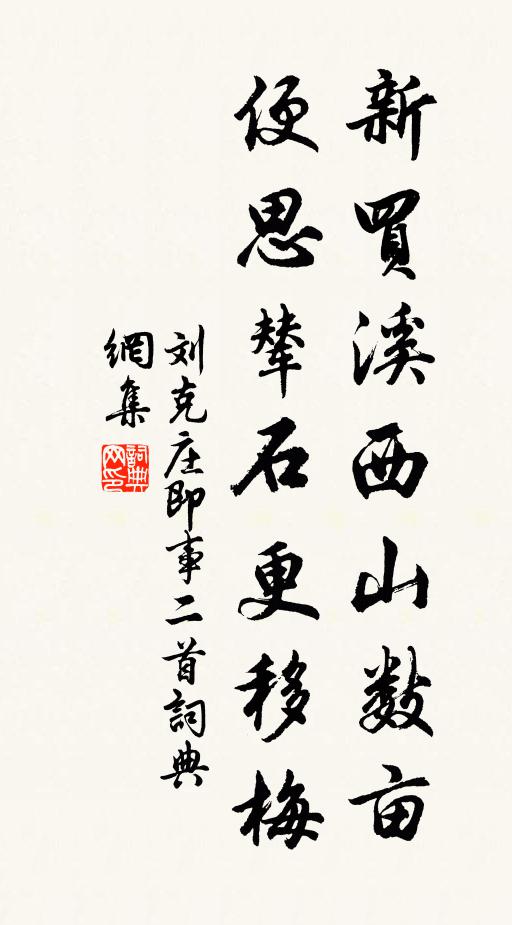 新買溪西山数亩
便思輦石更移梅
刘克庄即事二首詞典
網集
詞典
网印